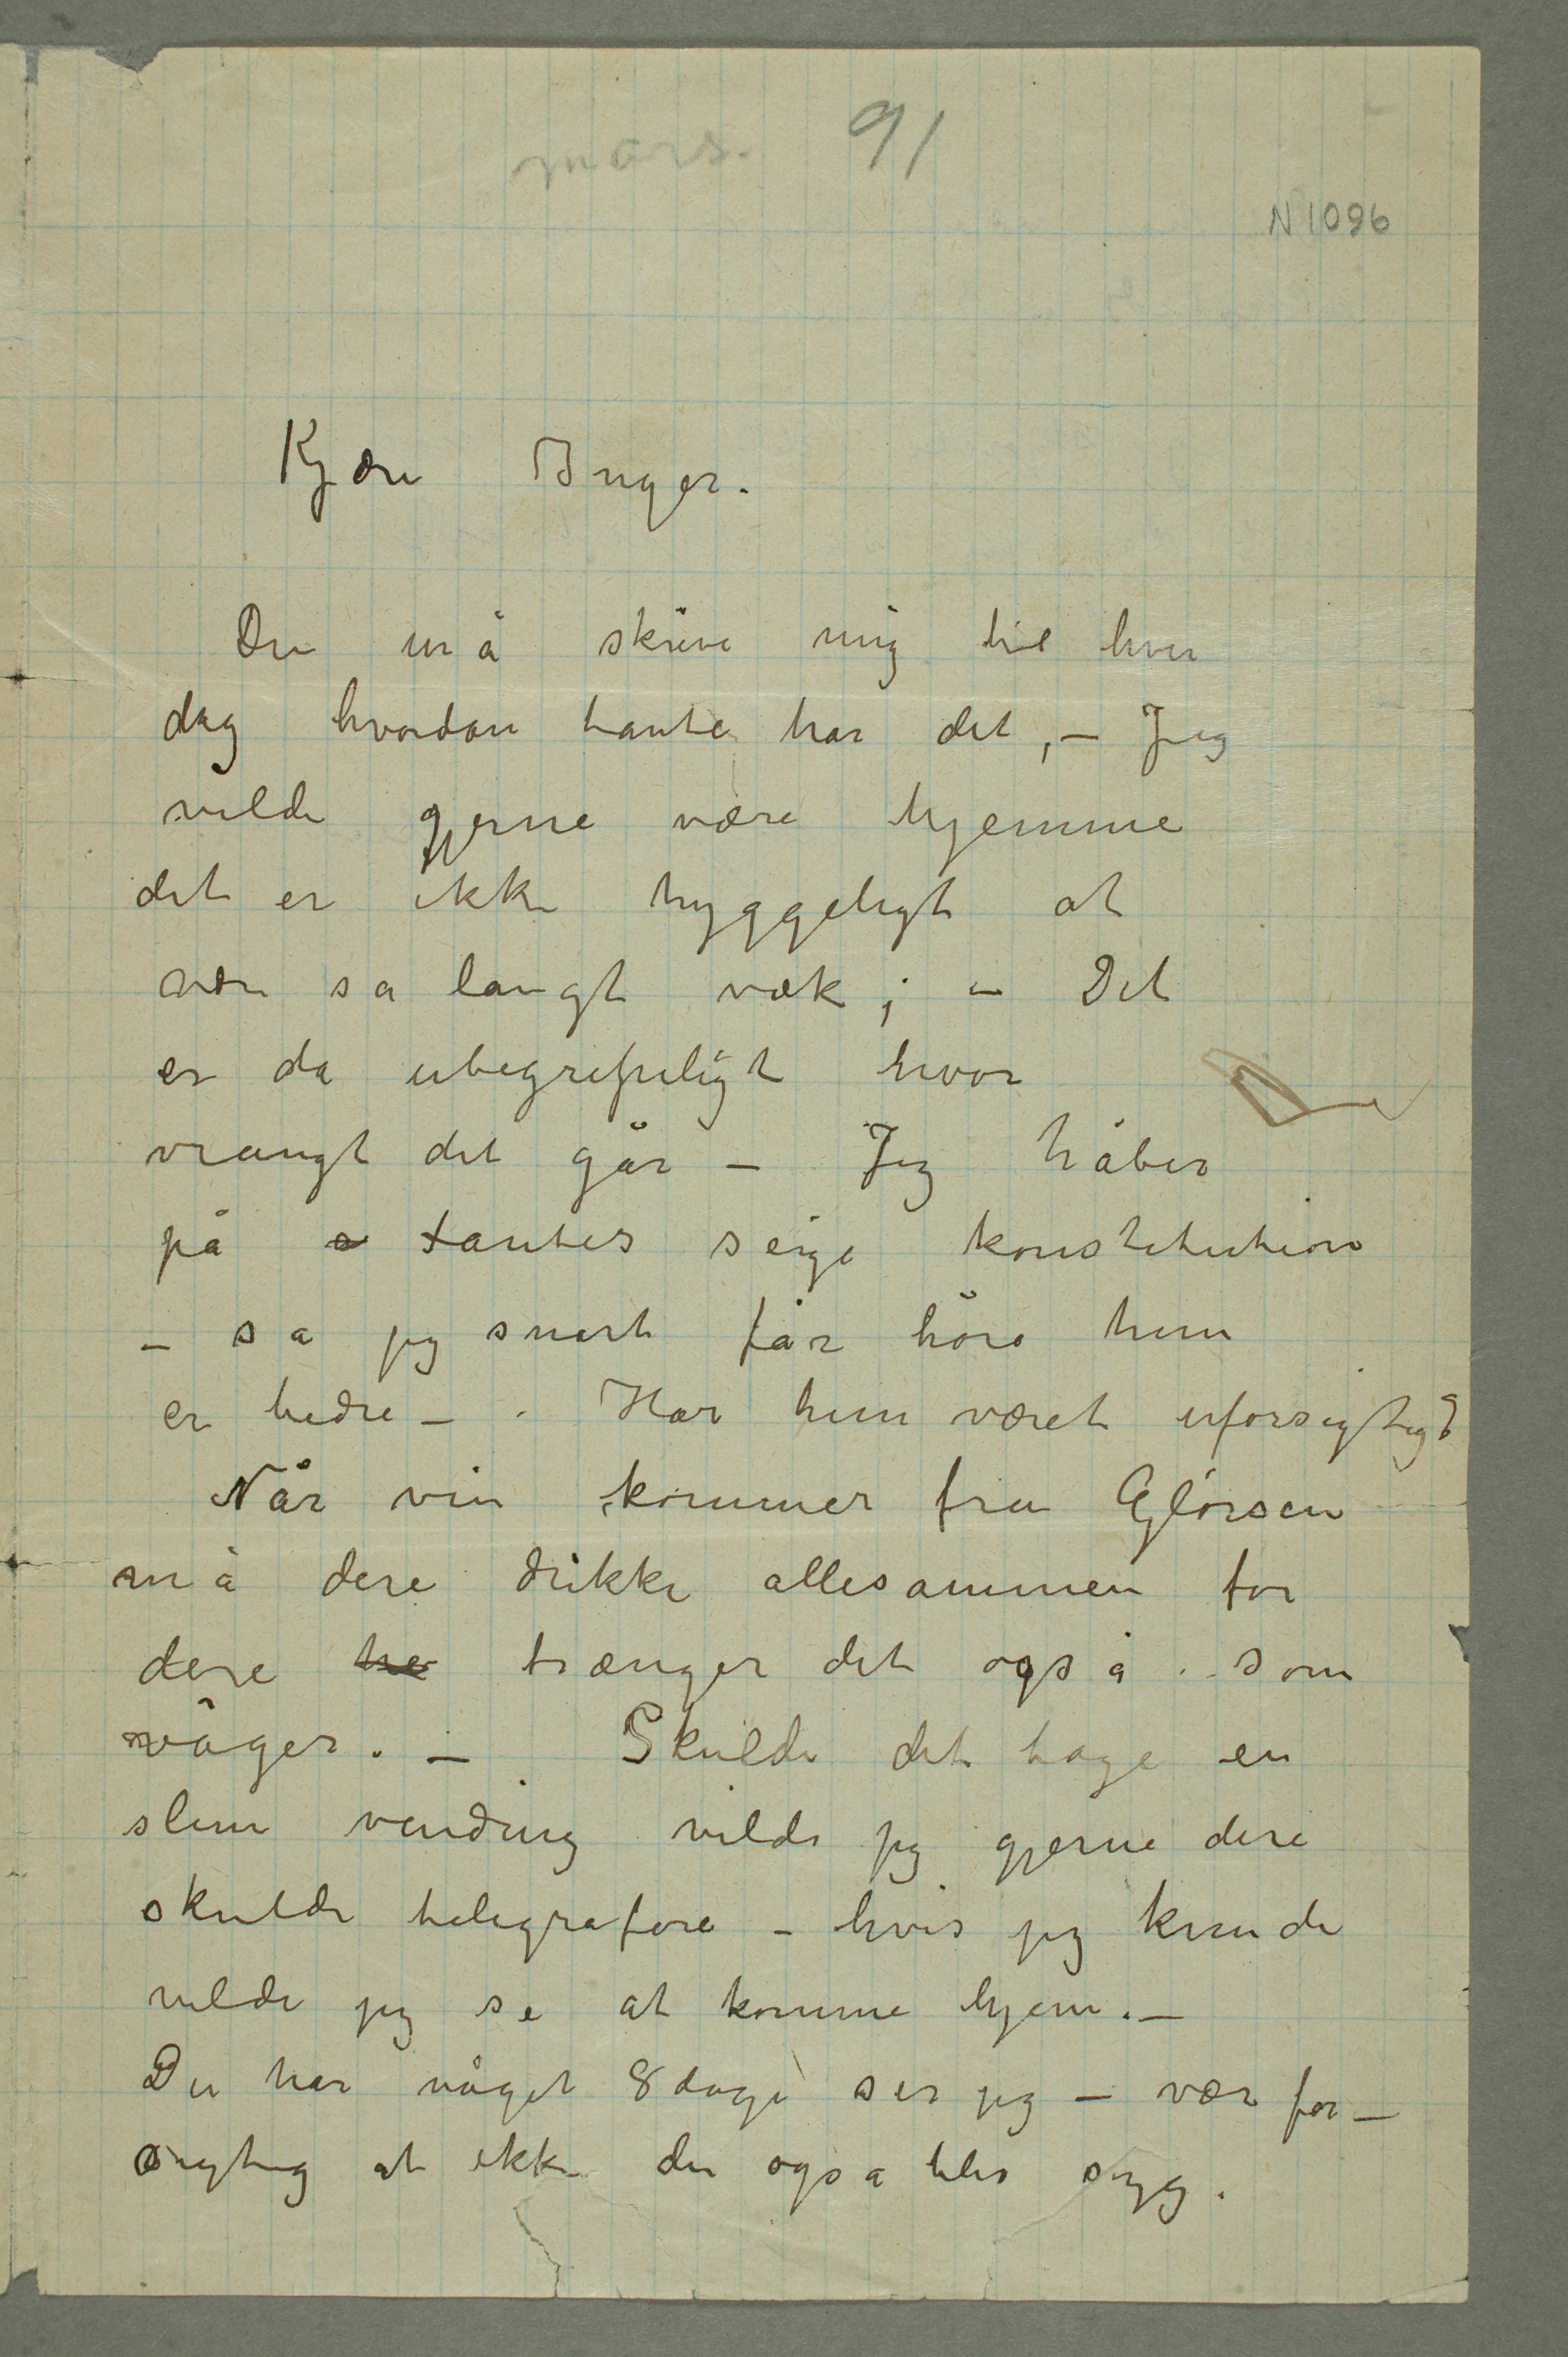 mars. 91
N 1096
Kjære Inger.
Du må skrive mig til hver
dag hvordan tante har det, – Jeg
vilde gjerne være hjemme
det er ikke hyggeligt at
være sa langt væk; – Det
er da ubegrifeligt hvor
vrangt det går – Jeg håber
på tantes seige konstitution
– sa jeg snart får høre hun
er bedre – . Har hun været uforsigtig?
Når vin kommer fra Gløersen
må dere drikke allesammen for
dere trænger det også som
våger. – Skulde det tage en
slem vending vilde jeg gjerne dere
skulde telegrafere – hvis jeg kunde
vilde jeg se at komme hjem. –
Du har våget 8 dage ser jeg – vær for–
sigtig at ikke du også blir syg.